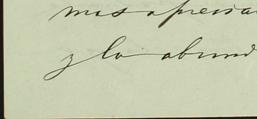 mas aprecia
y lo abund